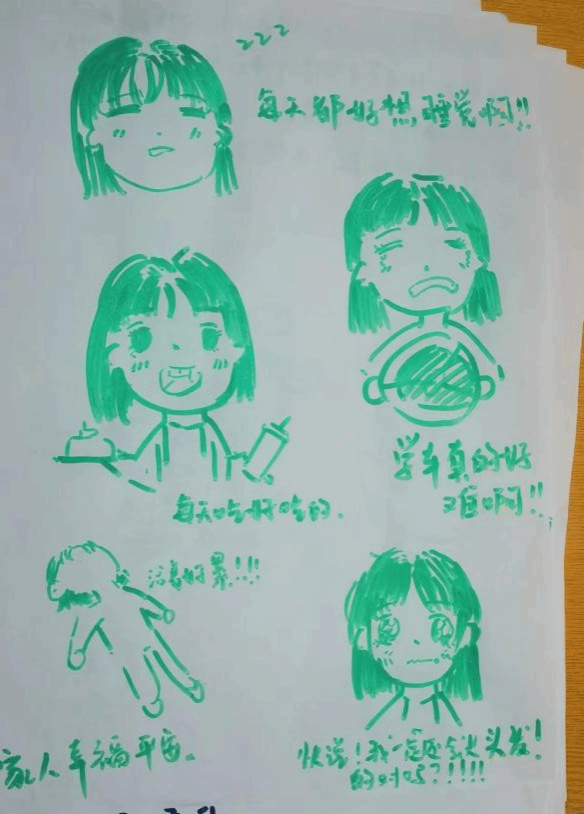 zzz
每天都好想睡觉啊!!
学车真的好
难啊!!
每天吃好吃的.
活着好累!!!
家人幸福平安。
快说!我一定还会长头发!
的对吗?!!!!